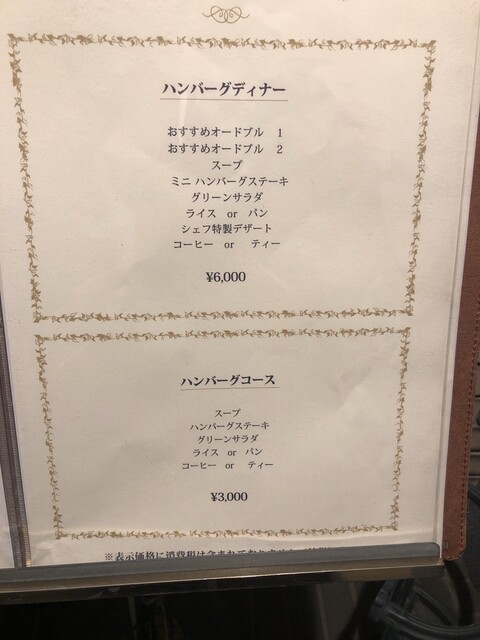 ハンバーグディナー
おすすめオードブル 1
おすすめオードブル 2
スープ
ミニ ハンバーグステーキ
グリーンサラダ
ライス or パン
シェフ特製デザート
コーヒー or ティー
¥6,000
ハンバーグコース
スープ
ハンバーグステーキ
グリーンサラダ
ライス or パン
コーヒー or ティー
¥3,000
※表示価格に消費税は含まれておりません